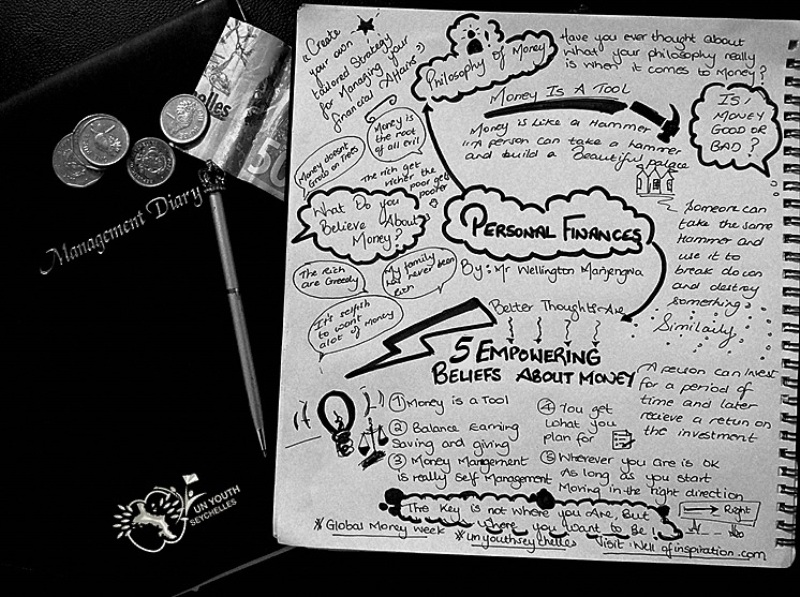 "Create
your own
tailored Strategy
for Managing your
financial Affairs"
Philosophy of Money
Have you ever thought about
what your philosophy really
is when it comes to Money?
Money Is A Tool
Money is Like a Hammer
"A person can take a hammer
and build a Beautiful palace
IS
MONEY
GOOD OR
BAD?
Someone can
take the same
Hammer and
use it to
break down
and destroy
something.
Similarly
A person can invest
for a period of
time and later
recieve a return on
the investment
Money is
the root
of all evil
Money doesnt
Grow on Trees
The rich get
richer the
poor get
poorer
What Do you
Believe About
Money?
The Rich
are Greedy
My family
has never been
Rich
It's selfish
to want
alot of Money
PERSONAL FINANCES
By: Mr Wellington
Better Thoughts Are
5 EMPOWERING
BELIEFS ABOUT MONEY
1 Money is a Tool
2 Balance Earning
Saving and giving
3 Money Mangement
is really self Management
4 You get
what you
plan for
5 Wherever you are is OK
As long as you start
Moving in the right direction
The Key is not where you Are, But
where you want to Be!
→ Right
# Global Money week
# unyouthseychelles
Visit: Well of inspiration.com
Management Diary
elles
50
UN YOUTH
SEYCHELLES